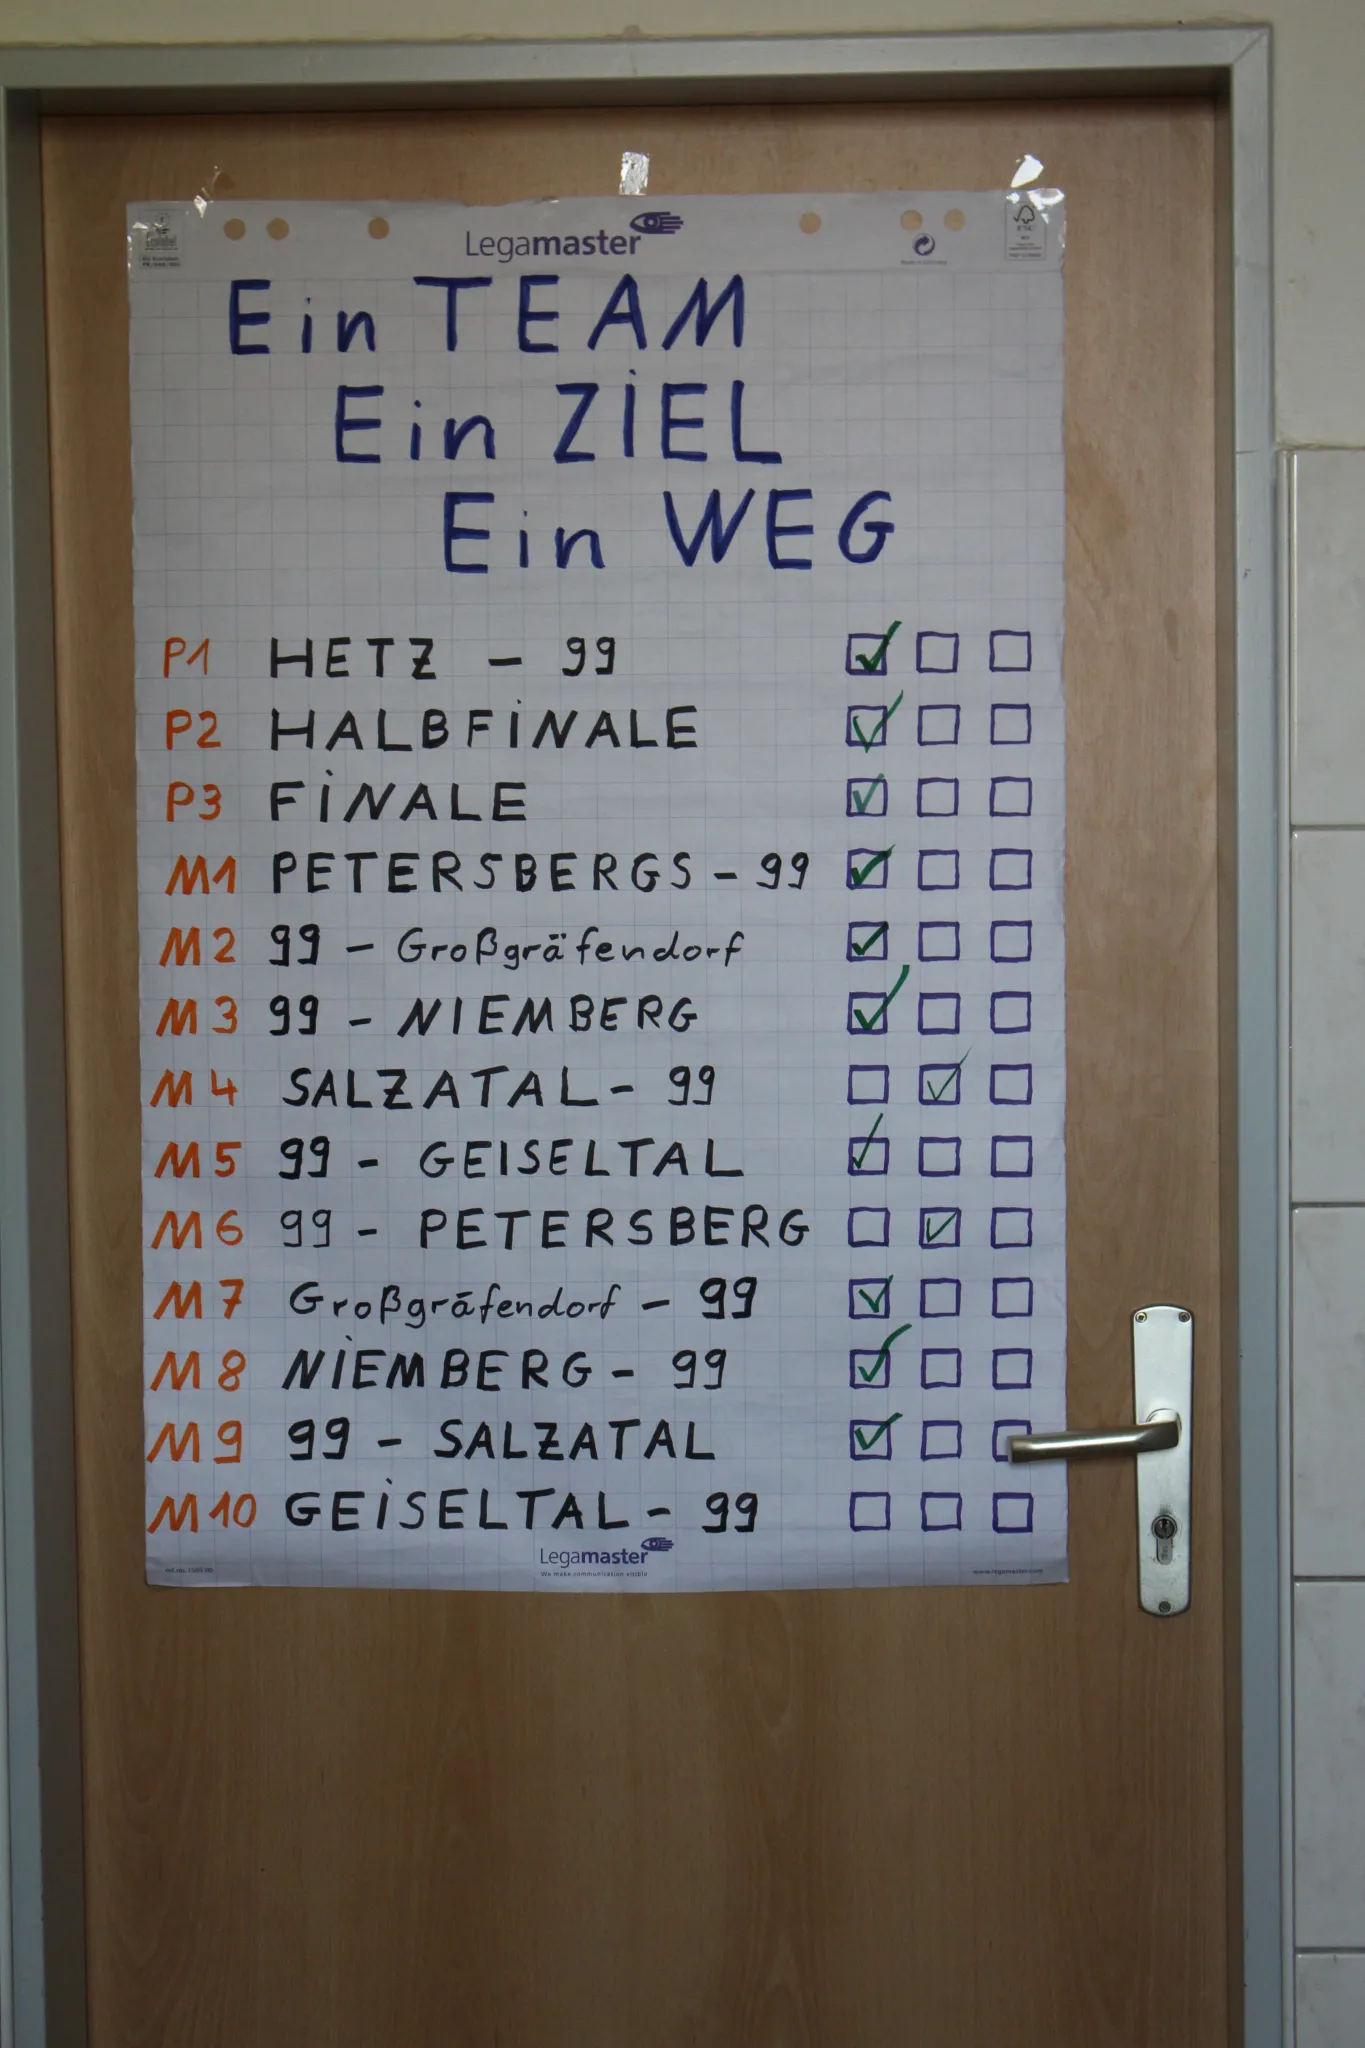 Legamaster
Ein TEAM
Ein ZIEL
Ein WEG
P1 HETZ - 99
P2 HALBFINALE
P3 FINALE
M1 PETERSBERGS - 99
M2 99 - Großgräfendorf
M3 99 - NIEMBERG
M4 SALZATAL - 99
M5 99 - GEISELTAL
M6 99 - PETERSBERG
M7 Großgräfendorf - 99
M8 NIEMBERG - 99
M9 99 - SALZATAL
M10 GEISELTAL - 99
Legamaster
We make communication visible
www.legamaster.com